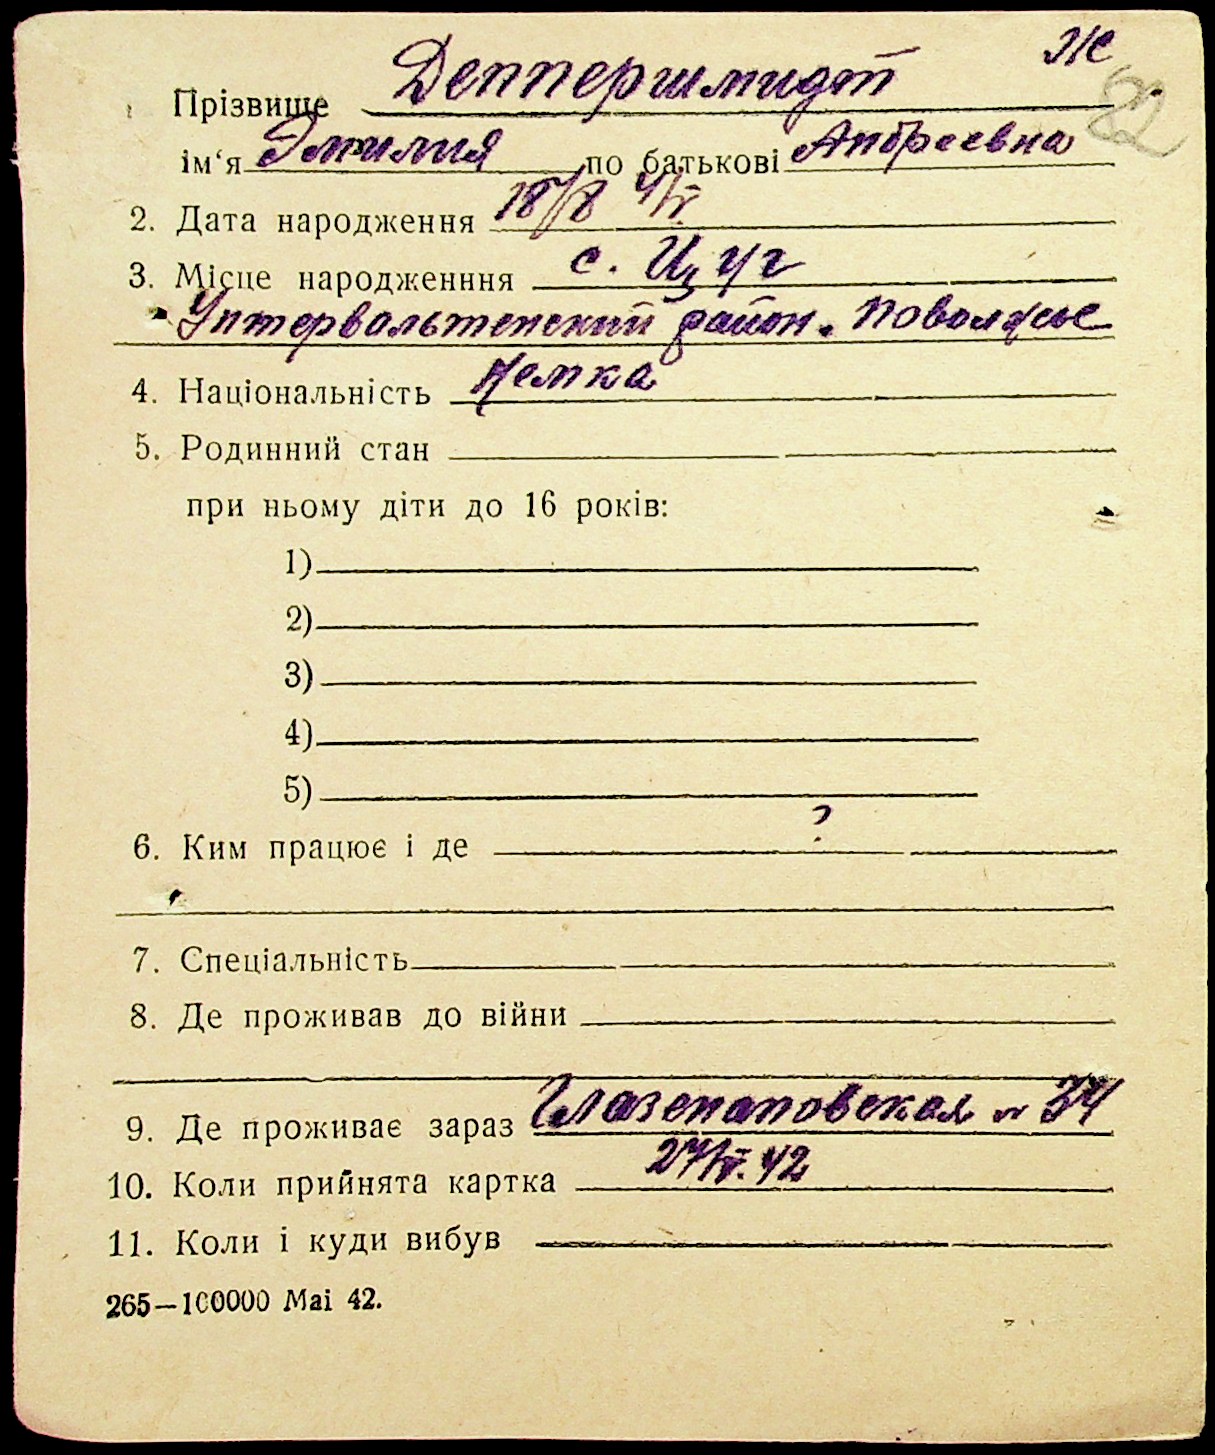 Же
82
Прізвище Деппершмидт
ім‘я Эмилия по батькові Андреевна
2. Дата народження
3. Місце народженння с. Цуг
Унтервальтенский район. Поволжье
4. Національність Немка
5. Родинний стан
при ньому діти до 16 років:
1)
2)
3)
4)
5)
6. Ким працює і де ?
7. Спеціальність
8. Де проживав до війни
9. Де проживає зараз Глазенаповская № 34
10. Коли прийнята картка
11. Коли і куди вибув
265—100000 Mai 42.